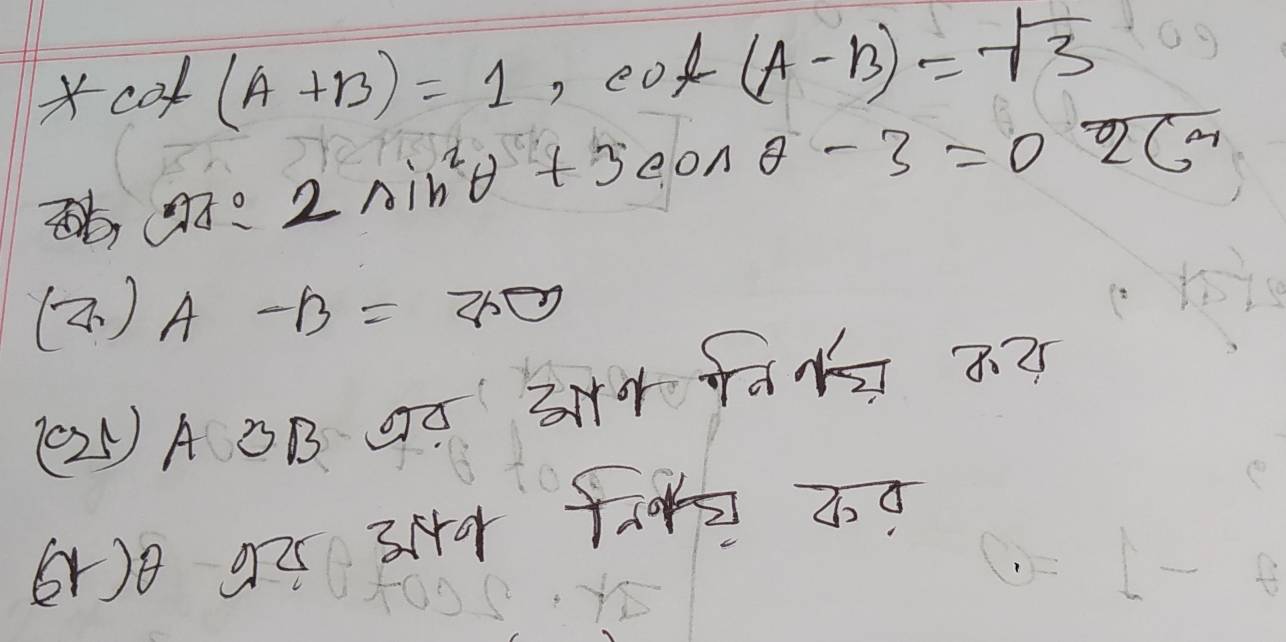 * cot (A + B) = 1, cot (A - B) = √3
এবং 2 sin²θ + 3 cos θ - 3 = 0 হলে
(ক) A - B = কত
(খ) A ও B এর মাণ নির্ণয় কর
(গ) θ এর মাণ নির্ণয় কর